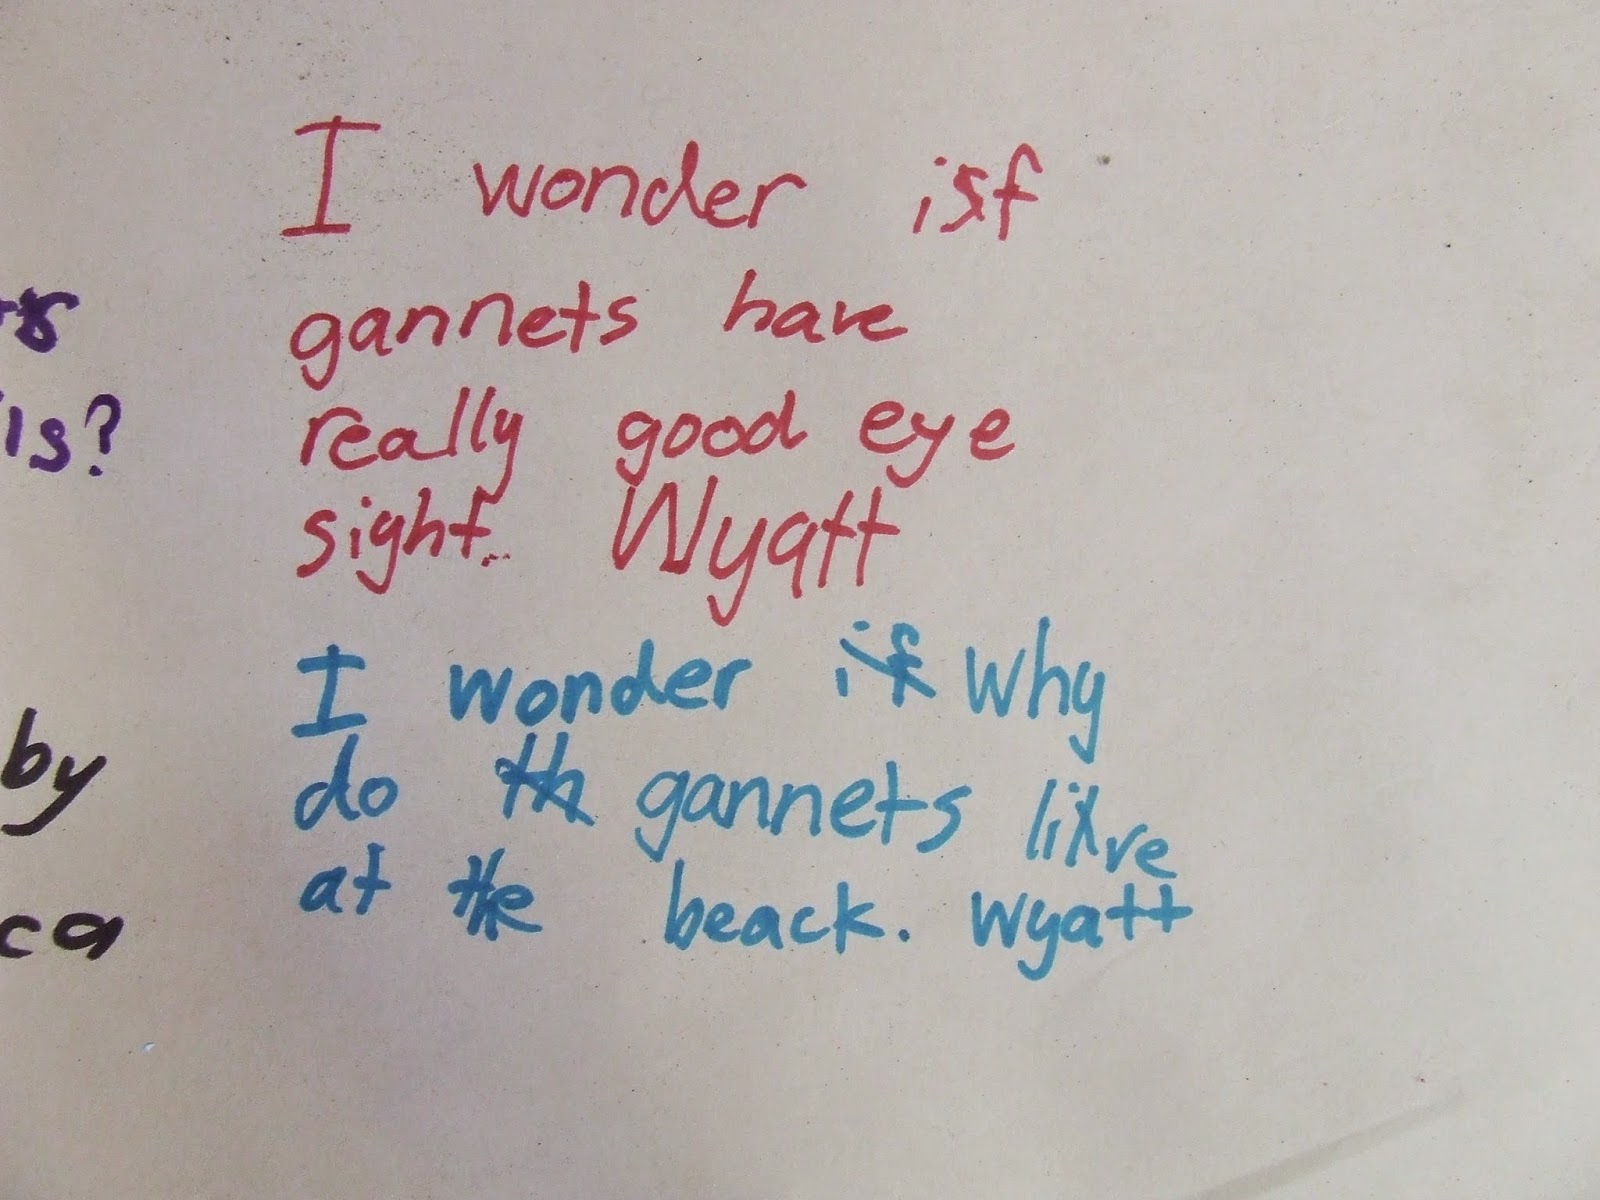 I wonder isf
gannets have
really good eye
sight. Wyatt
I wonder if why
do th gannets lixve
at the beack. Wyatt
ls?
by
ca